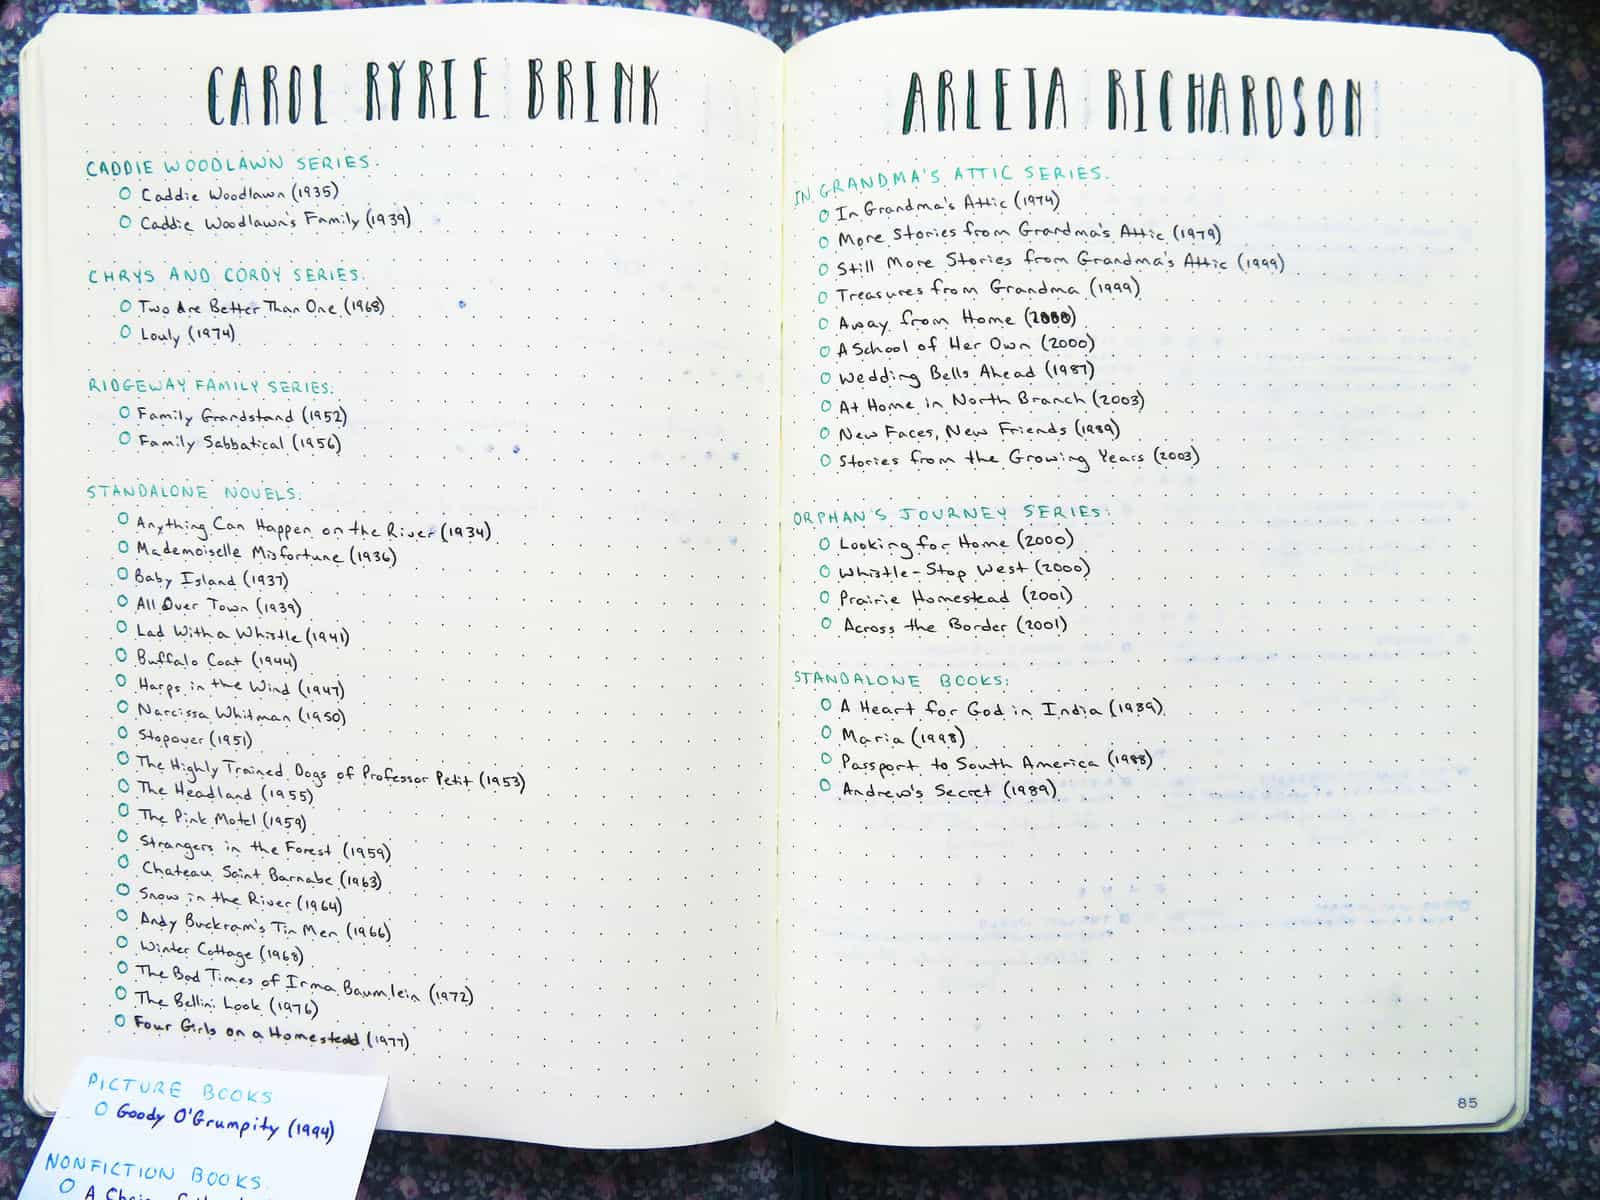 CAROL RYRIE BRINK
CADDIE WOODLAWN SERIES:
Caddie Woodlawn (1935)
Caddie Woodlawn's Family (1939)
CHRYS AND CORDY SERIES:
Two Are Better Than One (1968)
Louly (1974)
RIDGEWAY FAMILY SERIES:
Family Grandstand (1952)
Family Sabbatical (1956)
STANDALONE NOVELS:
Anything Can Happen on the River (1934)
Mademoiselle Misfortune (1936)
Baby Island (1937)
All Over Town (1939)
Lad With a Whistle (1941)
Buffalo Coat (1944)
Harps in the Wind (1947)
Narcissa Whitman (1950)
Stopover (1951)
The Highly Trained Dogs of Professor Petit (1953)
The Headland (1955)
The Pink Motel (1959)
Strangers in the Forest (1959)
Chateau Saint Barnabe (1963)
Snow in the River (1964)
Andy Buckram's Tin Men (1966)
Winter Cottage (1968)
The Bad Times of Irma Baumlein (1972)
The Bellini Look (1976)
Four Girls on a Homestead (1977)
PICTURE BOOKS
Goody O'Grumpity (1994)
NONFICTION BOOKS
A
ARLETA RICHARDSON
IN GRANDMA'S ATTIC SERIES:
In Grandma's Attic (1974)
More Stories from Grandma's Attic (1979)
Still More Stories from Grandma's Attic (1999)
Treasures from Grandma (1999)
Away from Home (2000)
A School of Her Own (2000)
Wedding Bells Ahead (1987)
At Home in North Branch (2003)
New Faces, New Friends (1989)
Stories from the Growing Years (2003)
ORPHAN'S JOURNEY SERIES:
Looking for Home (2000)
Whistle-Stop West (2000)
Prairie Homestead (2001)
Across the Border (2001)
STANDALONE BOOKS:
A Heart for God in India (1989)
Maria (1998)
Passport to South America (1988)
Andrew's Secret (1989)
85